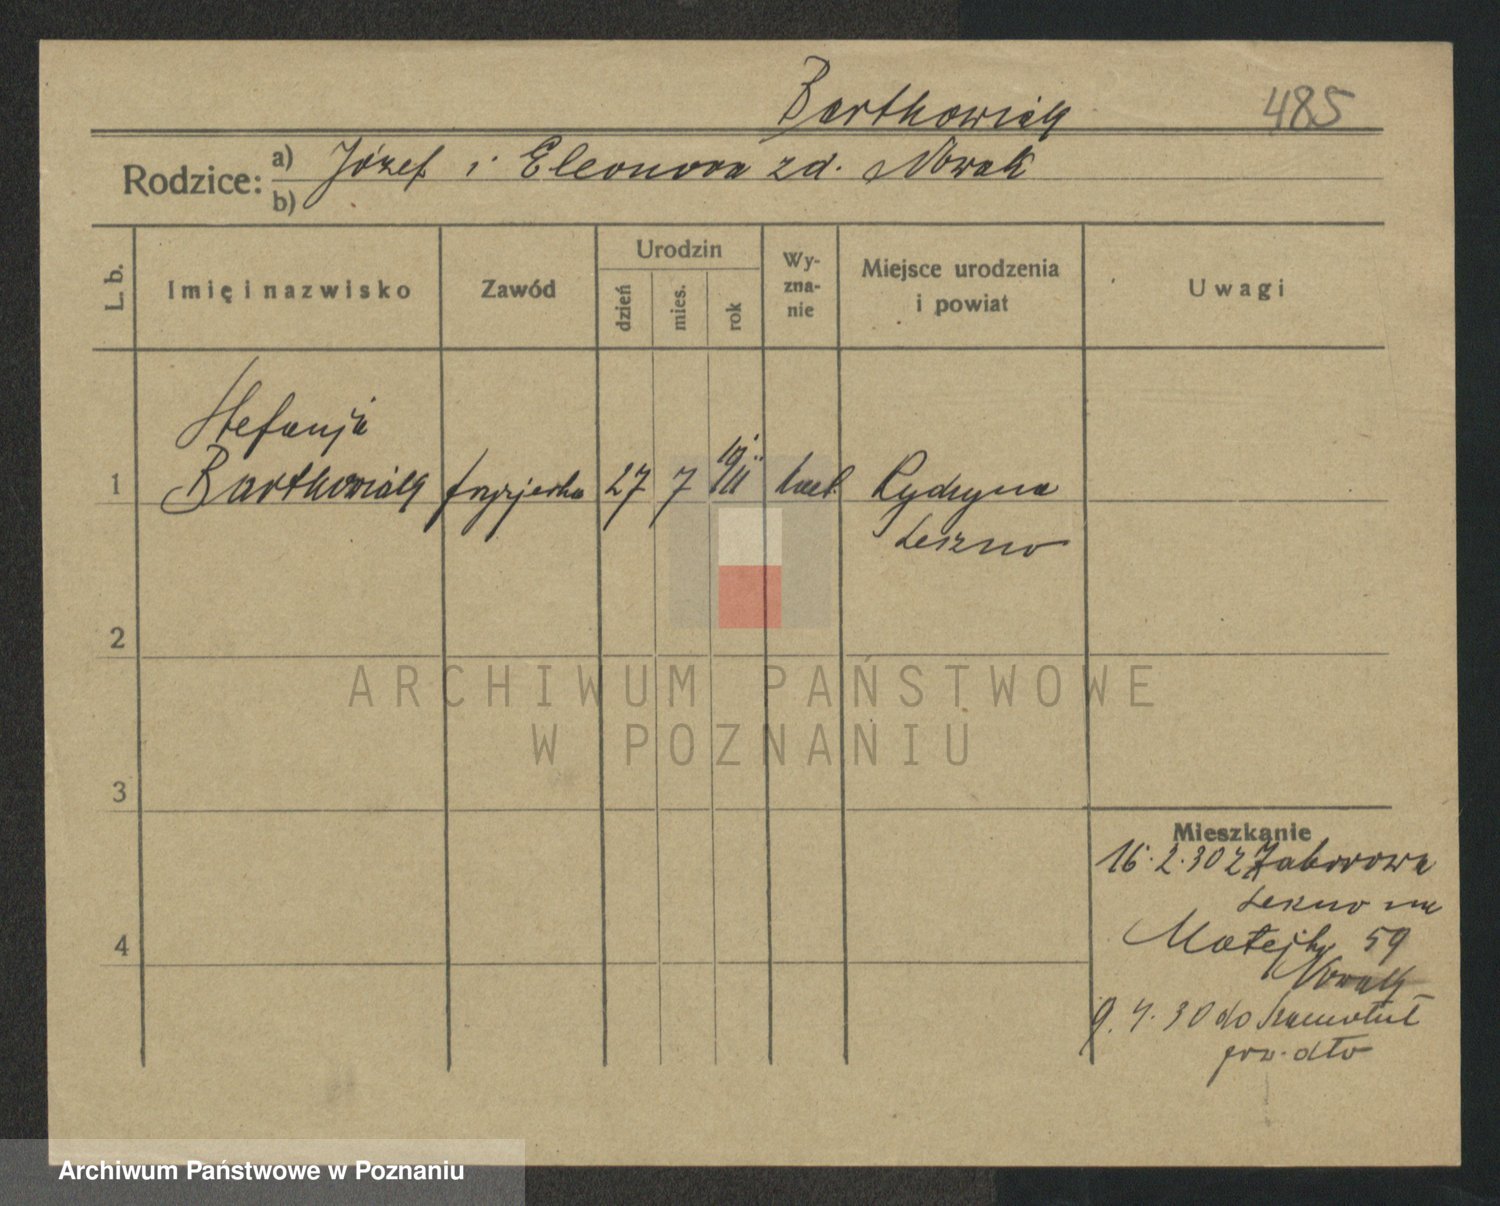 Bartkowiak 485
Rodzice: a) Józef i Eleonora zd. Nowak
b)
L. b. Imię i nazwisko Zawód Urodzin dzień mies. rok Wy-zna-nie Miejsce urodzenia i powiat Uwagi
Stefanja
1 Bartkowiak fryzjerka 27 7 kat. Rydzyna
Leszno
2
3
Mieszkanie
16.2.30 z Zaborowa
Leszno na
4 Matejki 59
Nowak
9.4.30 do Szamotuł
pow. dto
ARCHIWUM PAŃSTWOWE
W POZNANIU
Archiwum Państwowe w Poznaniu